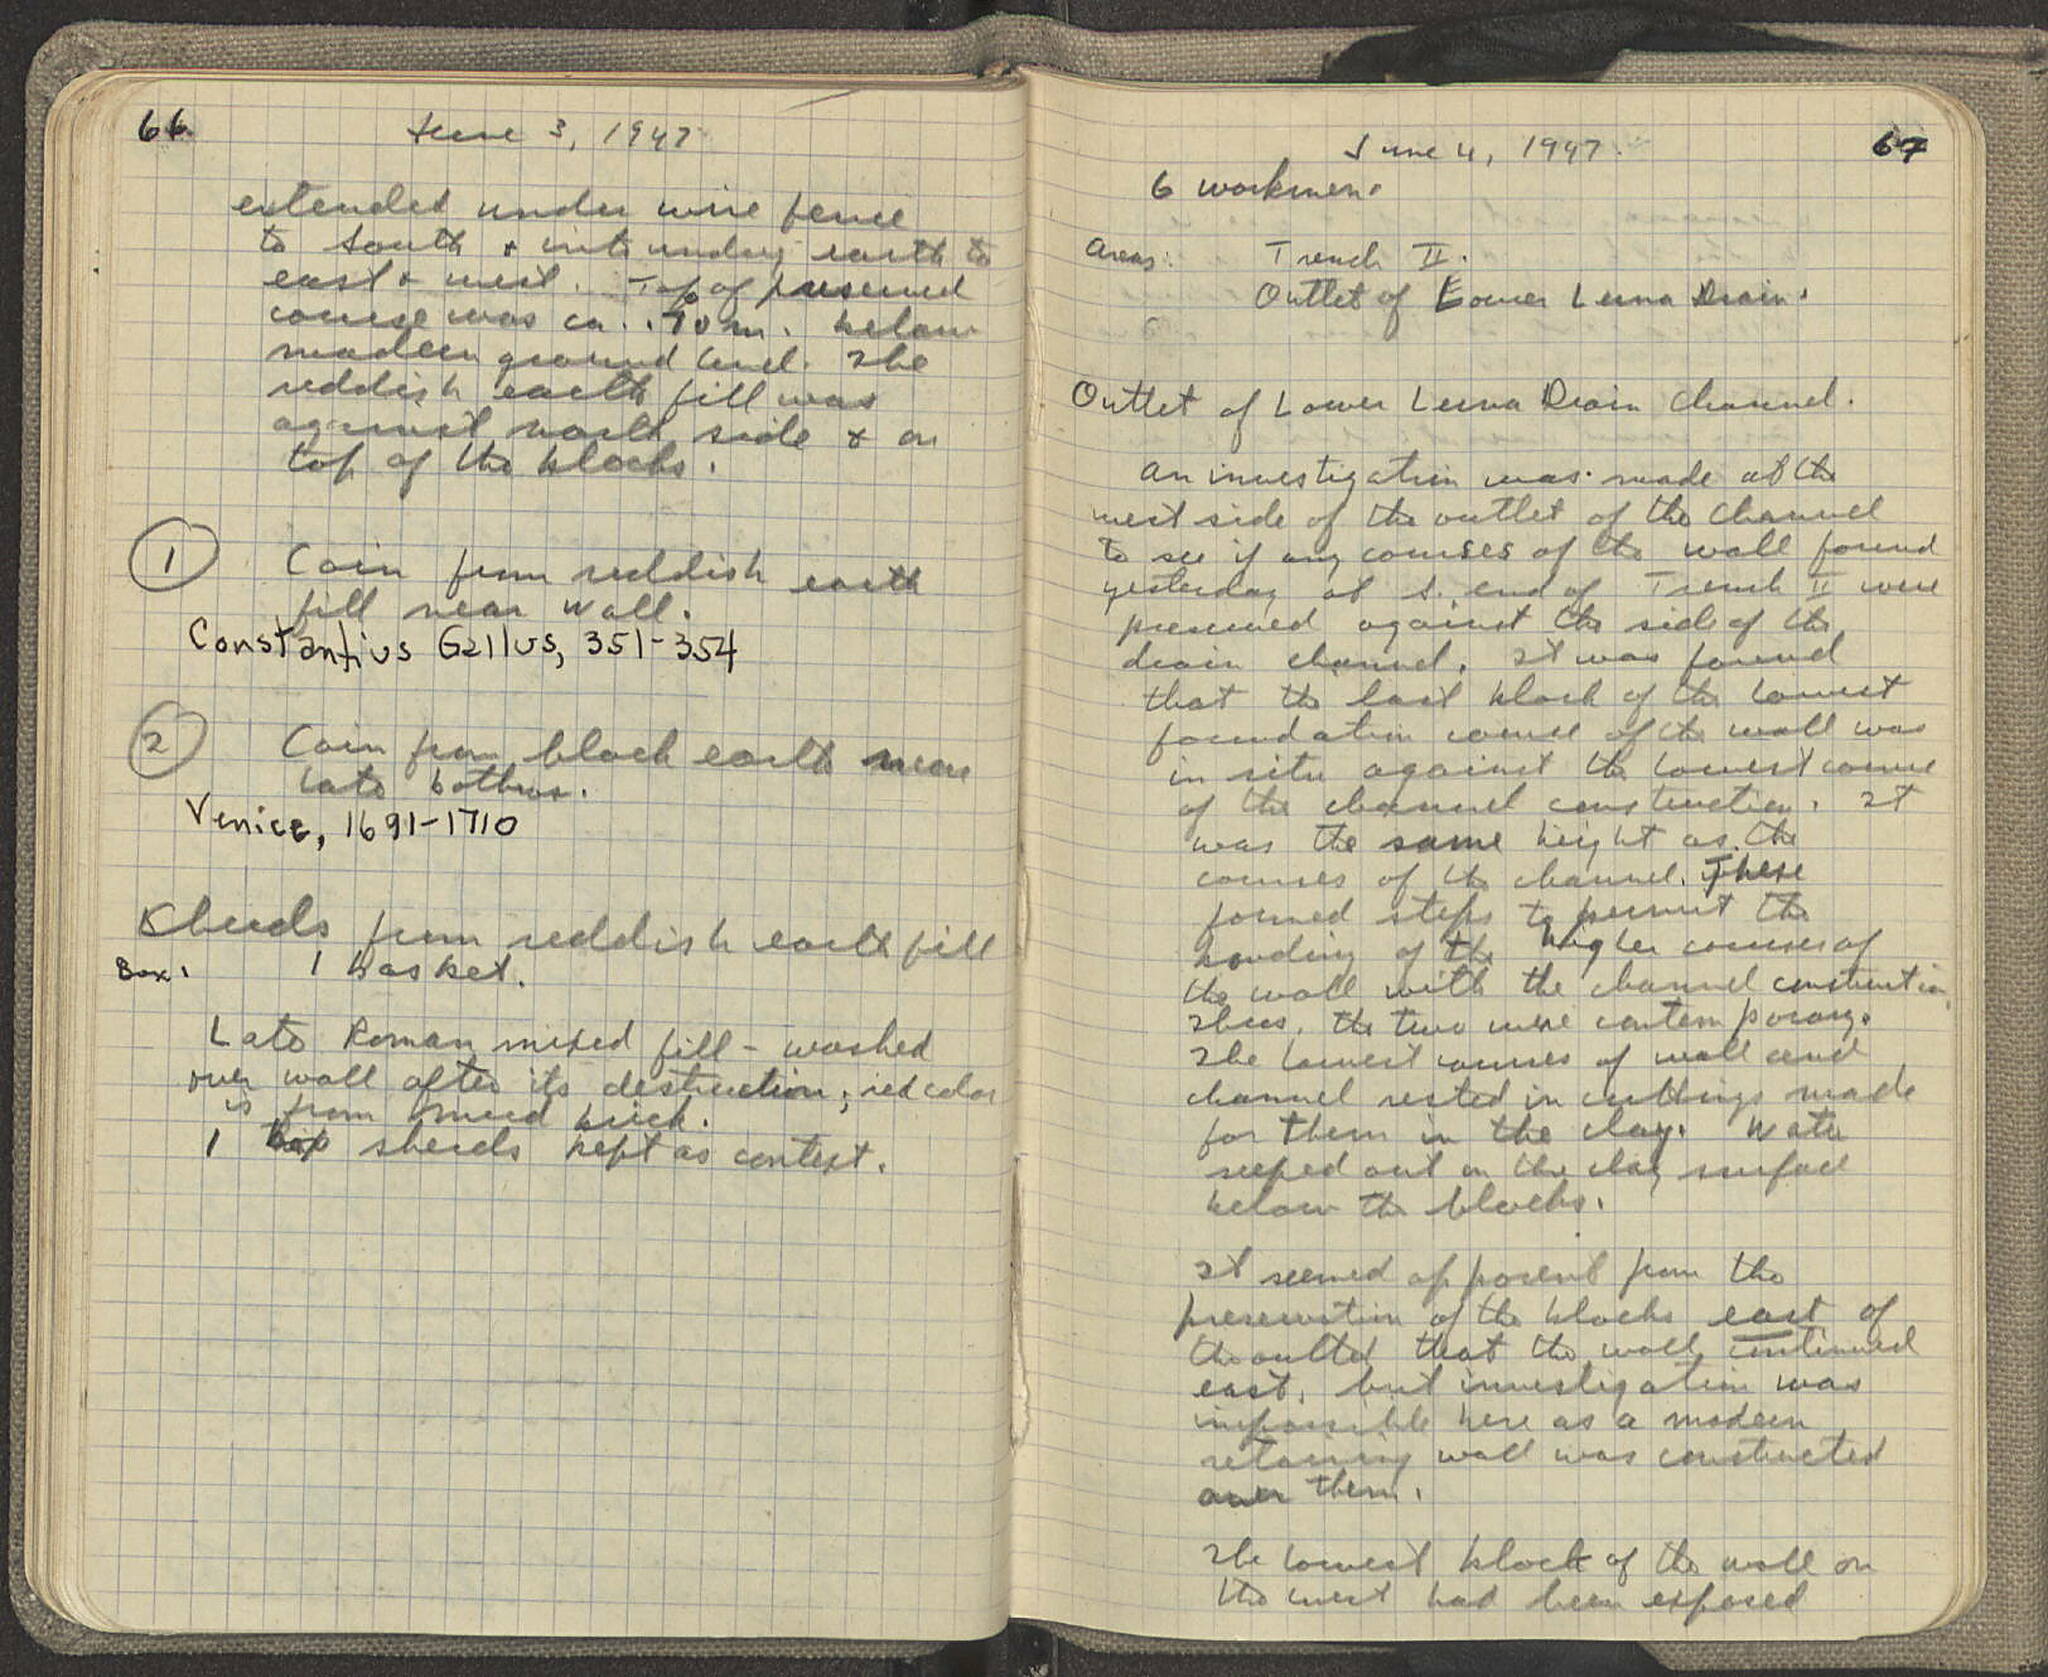 66
June 3, 1947
extended under wire fence
to south & into undug earth to
east & west. Top of preserved
course was ca. .70 m. below
modern ground level. The
reddish earth fill was
against north side & on
top of the blocks.
1 Coin from reddish earth
fill near wall.
Constantius Gallus, 351-354
2 Coin from black earth near
late bothros.
Venice, 1691-1710
Sherds from reddish earth fill
Box 1 1 basket.
Late Roman mixed fill - washed
over wall after its destruction; red color
is from mud brick.
1 sherds kept as context.
67
June 4, 1947.
6 workmen.
Areas: Trench II.
Outlet of Lower Lerna Drain.
Outlet of Lower Lerna Drain Channel.
An investigation was made at the
west side of the outlet of the channel
to see if any courses of the wall found
yesterday at S. end of Trench II were
preserved against the side of the
drain channel. It was found
that the last block of the lowest
foundation course of the wall was
in situ against the lowest course
of the channel construction. It
was the same height as the
courses of the channel. These
formed steps to permit the
bonding of the higher courses of
the wall with the channel construction.
Thus, the two were contemporary.
The lowest courses of wall and
channel rested in cuttings made
for them in the clay. Water
seeped out on the clay surface
below the blocks.
It seemed apparent from the
preservation of the blocks east of
the outlet that the wall continued
east, but investigation was
impossible here as a modern
retaining wall was constructed
over them.
The lowest block of the wall on
the west had been exposed